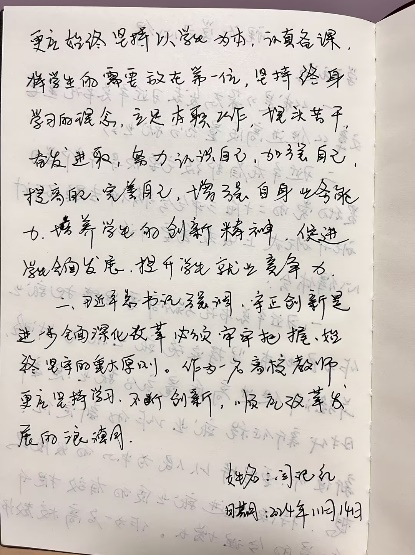 更应始终坚持以学生为本，认真备课，
将学生的需要放在第一位，坚持终身
学习的理念，立足本职工作，埋头苦干，
奋发进取，努力认识自己，加强自己，
提高自己，完善自己，增强自身业务能
力，培养学生的创新精神，促进
学生全面发展，提升学生就业竞争力。
二、习近平总书记强调，守正创新是
进一步全面深化改革必须牢牢把握、始
终坚守的重大原则。作为一名高校教师
更应坚持学习，不断创新，顺应改革发
展的浪潮。
姓名：闫
日期：2024年11月14日